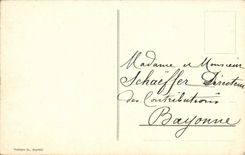 Madame et Monsieur
Schaëffer Directeur
des Contributions
Bayonne